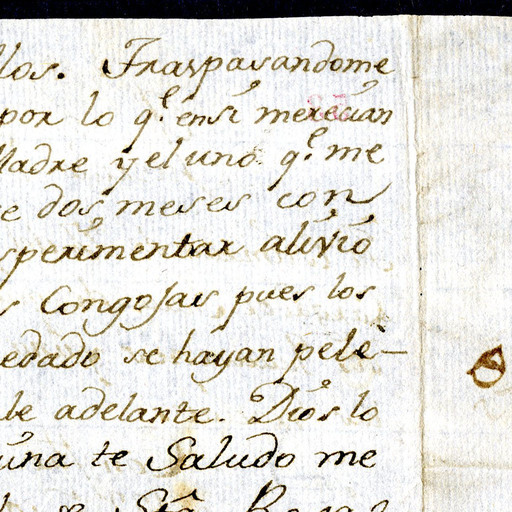 llos. Traspasandome
por lo q.e ensi merecian
Madre y el uno q.e me
e dos meses con
sperimentar alivio
s Congojas pues los
edado se hayan pele-
be adelante. Dios lo
una te Saludo me